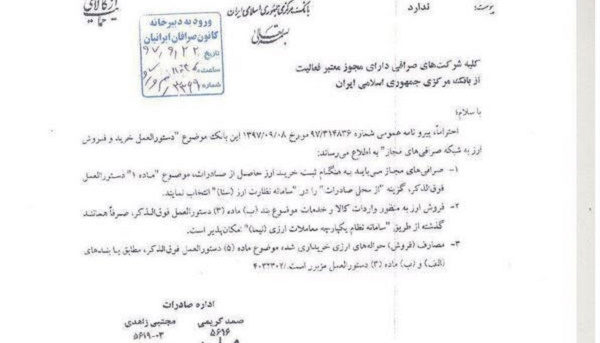 پیوست: ندارد
بانک مرکزی جمهوری اسلامی ایران
بسمه تعالی
ورود به دبیرخانه
کانون صرافان ایرانیان
تاریخ ۹۷,۹,۲۲
ساعت
شماره ۳۳۶۹
کلیه شرکت‌های صرافی دارای مجوز معتبر فعالیت
از بانک مرکزی جمهوری اسلامی ایران
با سلام؛
احتراماً، پیرو نامه عمومی شماره ۹۷/۳۱۴۸۳۶ مورخ ۱۳۹۷/۰۹/۰۸ این بانک موضوع "دستورالعمل خرید و فروش
ارز به شبکه صرافی‌های مجاز" به اطلاع می‌رساند:
۱- صرافی‌های مجاز می‌باید به هنگام ثبت خرید ارز حاصل از صادرات، موضوع "ماده ۱" دستورالعمل
فوق‌الذکر، گزینه "از محل صادرات" را در "سامانه نظارت ارز (سنا)" انتخاب نمایند.
۲- فروش ارز به منظور واردات کالا و خدمات موضوع بند (ب) ماده (۳) دستورالعمل فوق‌الذکر، صرفاً همانند
گذشته از طریق "سامانه نظام یکپارچه معاملات ارزی (نیما)" امکان‌پذیر است.
۳- مصارف (فروش) حواله‌های ارزی خریداری شده موضوع ماده (۵) دستورالعمل فوق‌الذکر، مطابق با بندهای
(الف) و (ب) ماده (۳) دستورالعمل مزبور است./۴۰۳۲۳۰۲
اداره صادرات
صمد کریمی مجتبی زاهدی
۵۶۱۶ ۵۶۱۹-۰۳